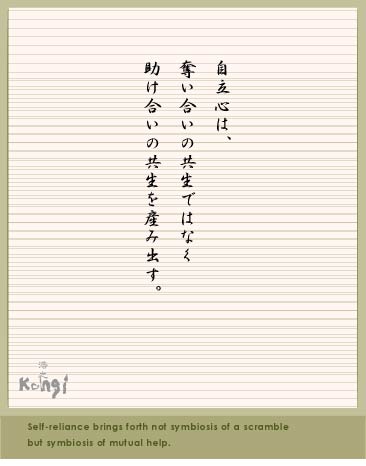 自立心は、
奪い合いの共生ではなく
助け合いの共生を産み出す。
浩之
Kongi
Self-reliance brings forth not symbiosis of a scramble
but symbiosis of mutual help.